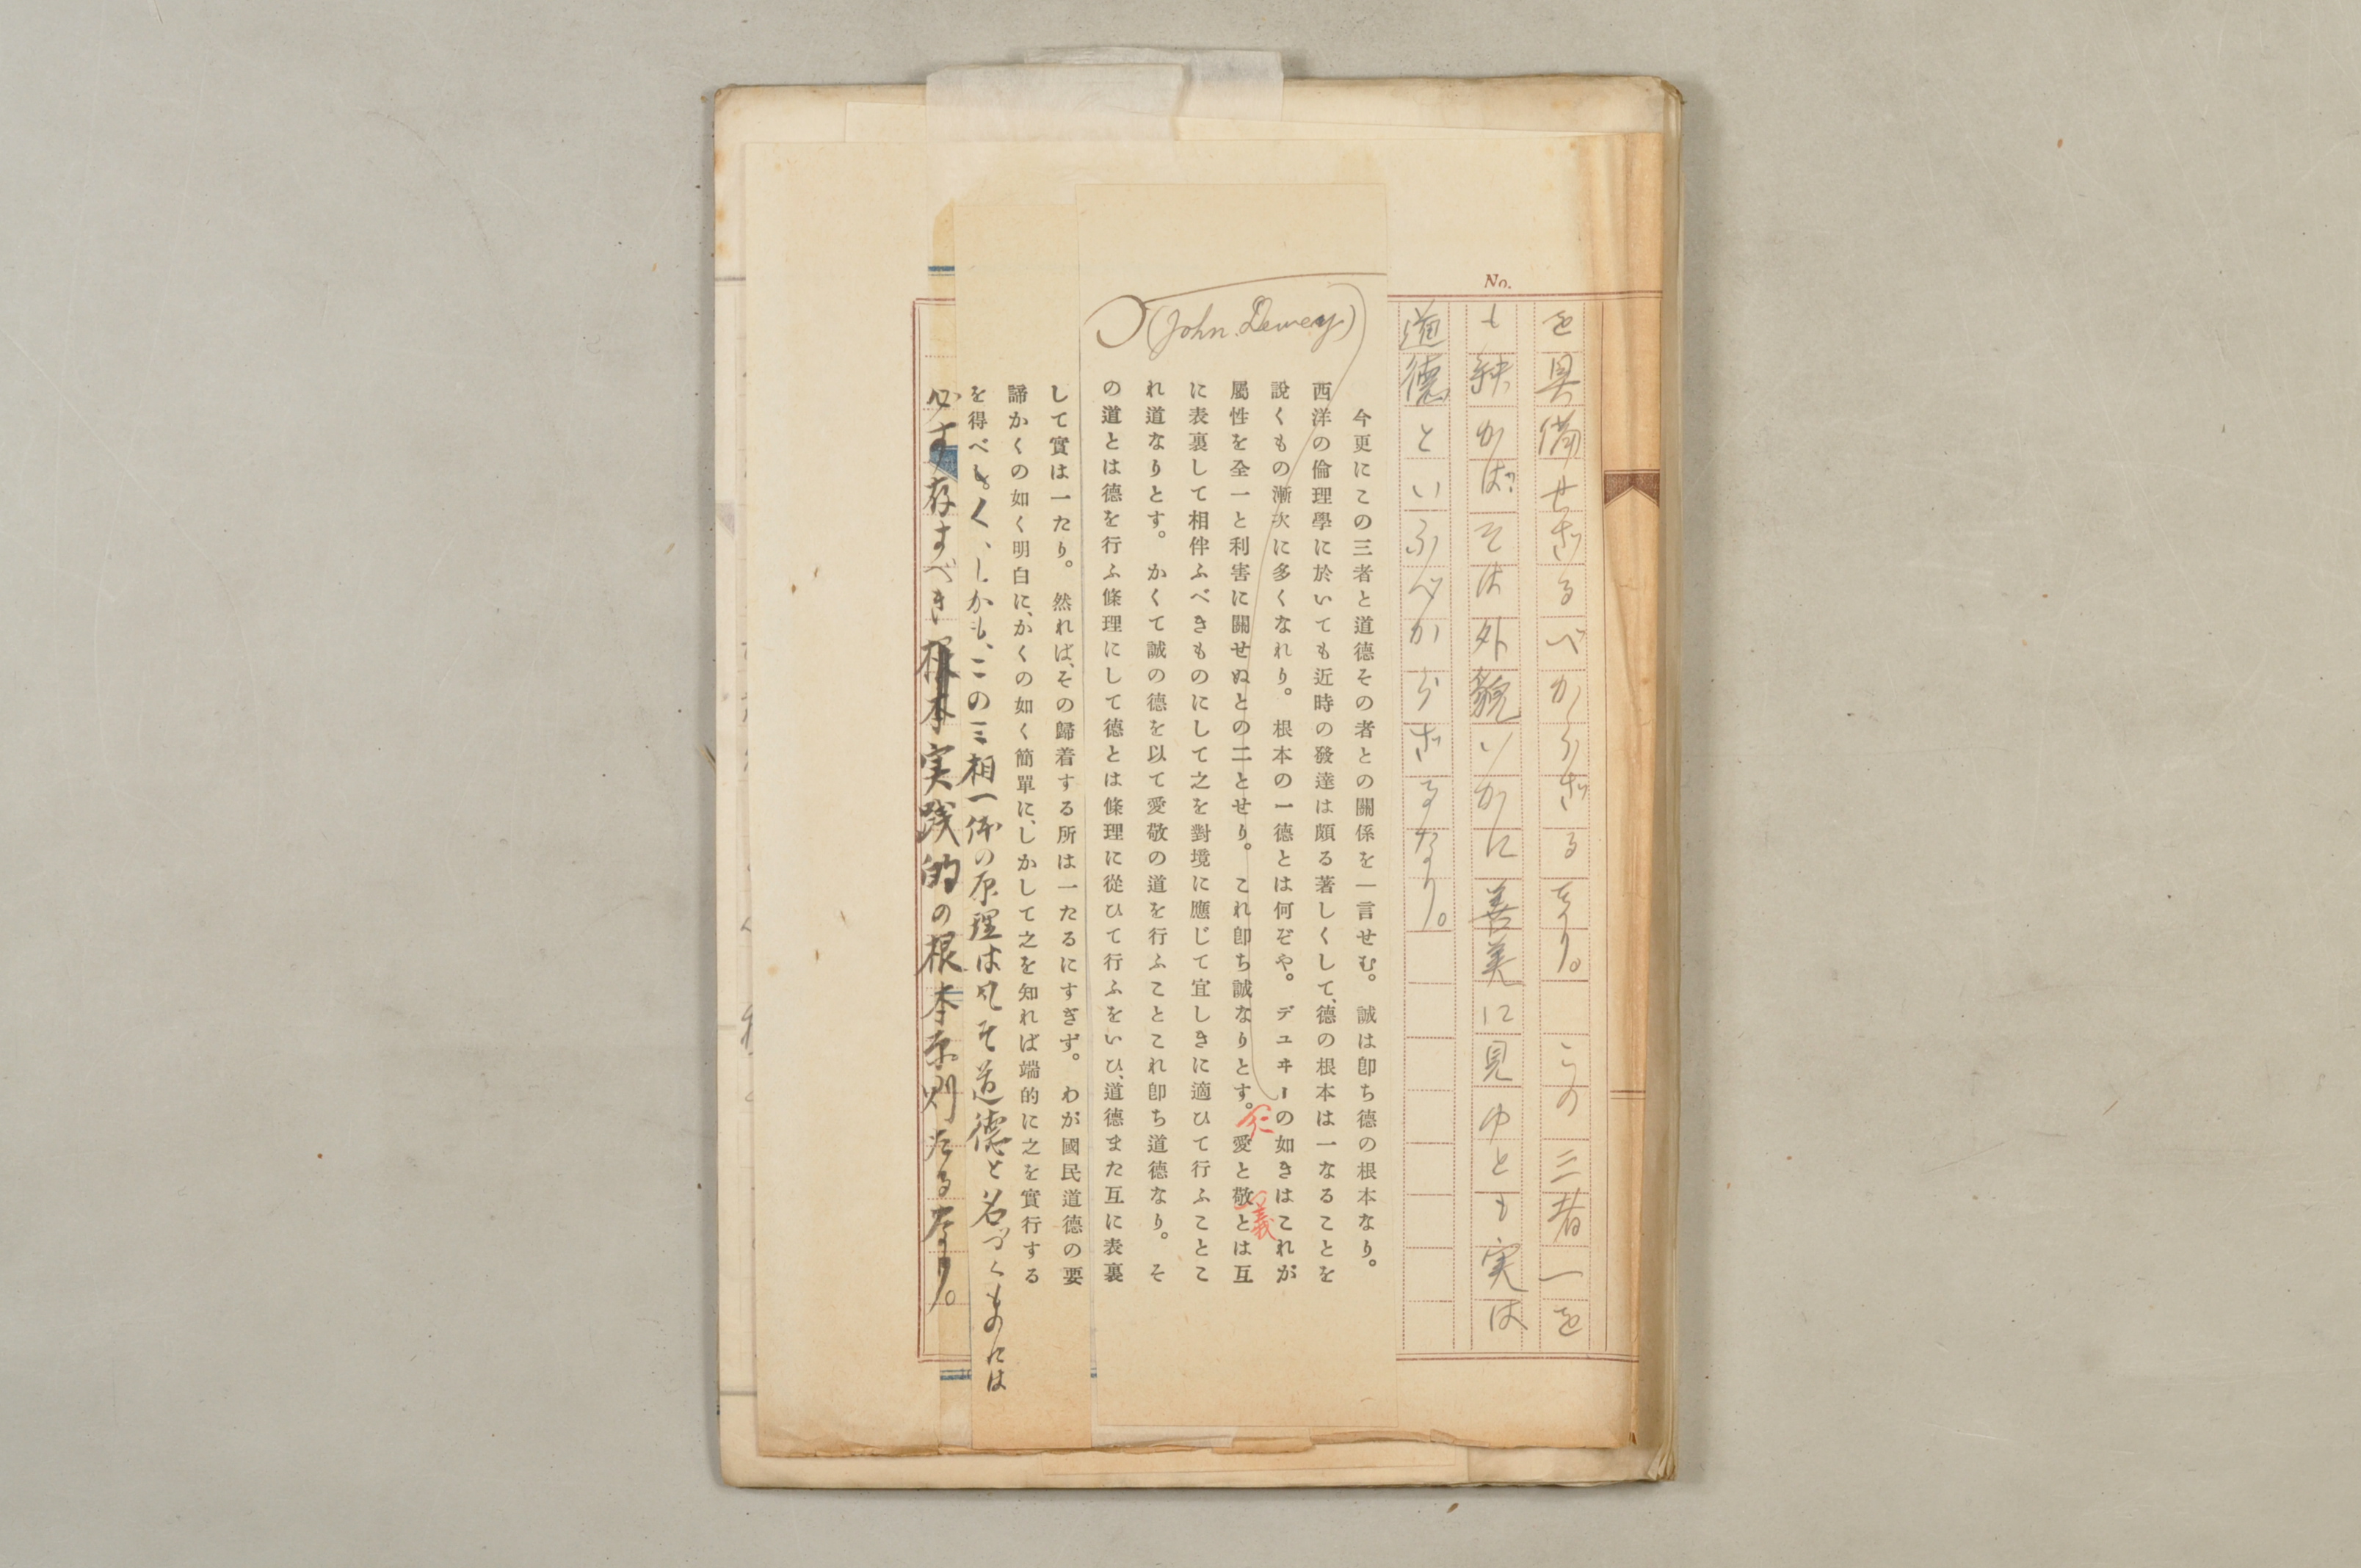 No.
を具備せざるべからざるなり。 この三者一を
も缺かばそは外貌いかに善美に見ゆとも実は
道德といふべからざるなり。
(John. Dewey)
今更にこの三者と道德その者との關係を一言せむ。 誠は卽ち德の根本なり。
西洋の倫理學に於いても近時の發達は頗る著しくして、德の根本は一なることを
說くもの漸次に多くなれり。 根本の一德とは何ぞや。 デユヰーの如きはこれが
屬性を全一と利害に關せぬとの二とせり。 これ卽ち誠なりとす。 愛と敬とは互
仁
義
に表裏して相伴ふべきものにして之を對境に應じて宜しきに適ひて行ふことこ
れ道なりとす。 かくて誠の德を以て愛敬の道を行ふことこれ卽ち道德なり。 そ
の道とは德を行ふ條理にして德とは條理に從ひて行ふをいひ、道德また互に表裏
して實は一たり。 然れば、その歸着する所は一たるにすぎず。 わが國民道德の要
諦かくの如く明白に、かくの如く簡單に、しかして之を知れば端的に之を實行する
を得べく、しかも、この三相一体の原理は凡そ道德と名づくものには
必す存すべき実践的の根本原則たるなり。